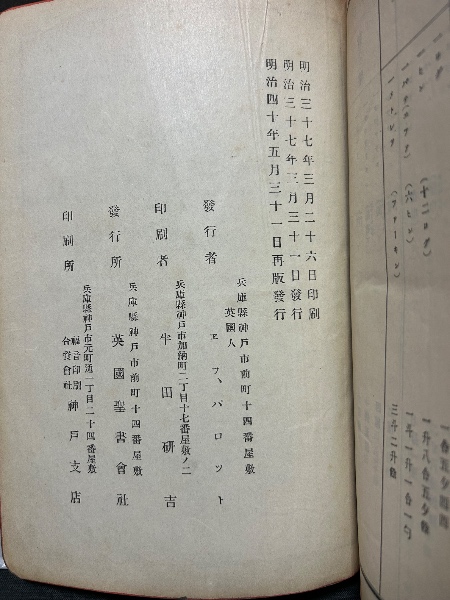 明治三十七年三月二十六日印刷
明治三十七年三月三十一日發行
明治四十年五月三十一日再版發行
兵庫縣神戸市前町十四番屋敷
英國人
發行者 エフ、パロット
兵庫縣神戸市加納町二丁目十七番屋敷ノ二
印刷者 牛田研吉
兵庫縣神戸市前町十四番屋敷
發行所 英國聖書會社
兵庫縣神戸市元町通一丁目二十四番屋敷
印刷所 福音印刷合資會社 神戸支店
(十二ログ)
(六ヒン)
一斗一升一合一勺
三斗二升餘